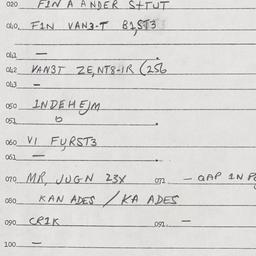 020 FIN A ANDER S+TUT
040 FIN VAN3-T B1,ST3
041 —
042 VAN3T ZE,NT8-IR (256
043 —
050 INDEHEJM
051 b
060 VI FYRST3
061 —
070 MR, JUGN 23X 071 — GAP IN
080 KAN ADES / KA ADES
090 CRIK 091 —
100 —